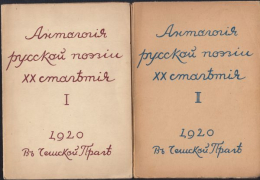 Антологія
русской поэзіи
XX столѣтія
I
1920
Въ Чешской Прагѣ
Антологія
русской поэзіи
XX столѣтія
II
1920
Въ Чешской Прагѣ